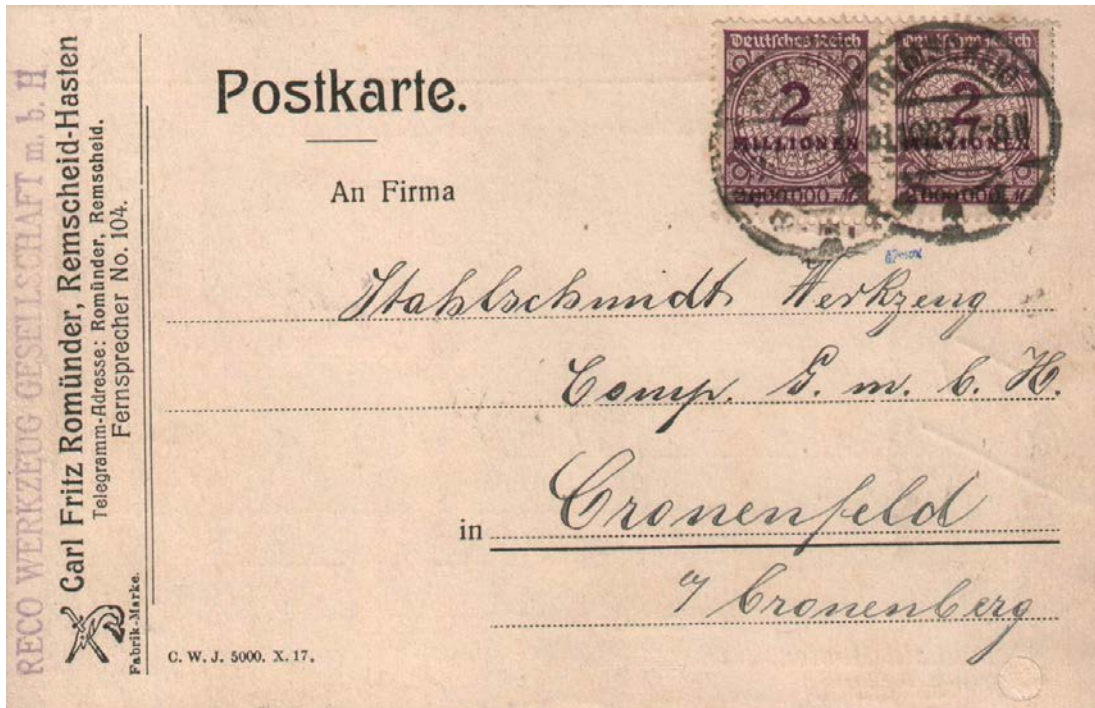 RECO WERKZEUG GESELLSCHAFT m. b. H
Carl Fritz Romünder, Remscheid-Hasten
Telegramm-Adresse: Romünder, Remscheid.
Fernsprecher No. 104.
Fabrik-Marke.
Postkarte.
An Firma
Deutsches Reich
2
MILLIONEN
2000000 M
Deutsches Reich
2
MILLIONEN
2000000 M
REMSCHEID
7-8 N
Stahlschmidt Werkzeug
Comp. G. m. b. H.
in Cronenfeld
a/ Cronenberg
C. W. J. 5000. X. 17.